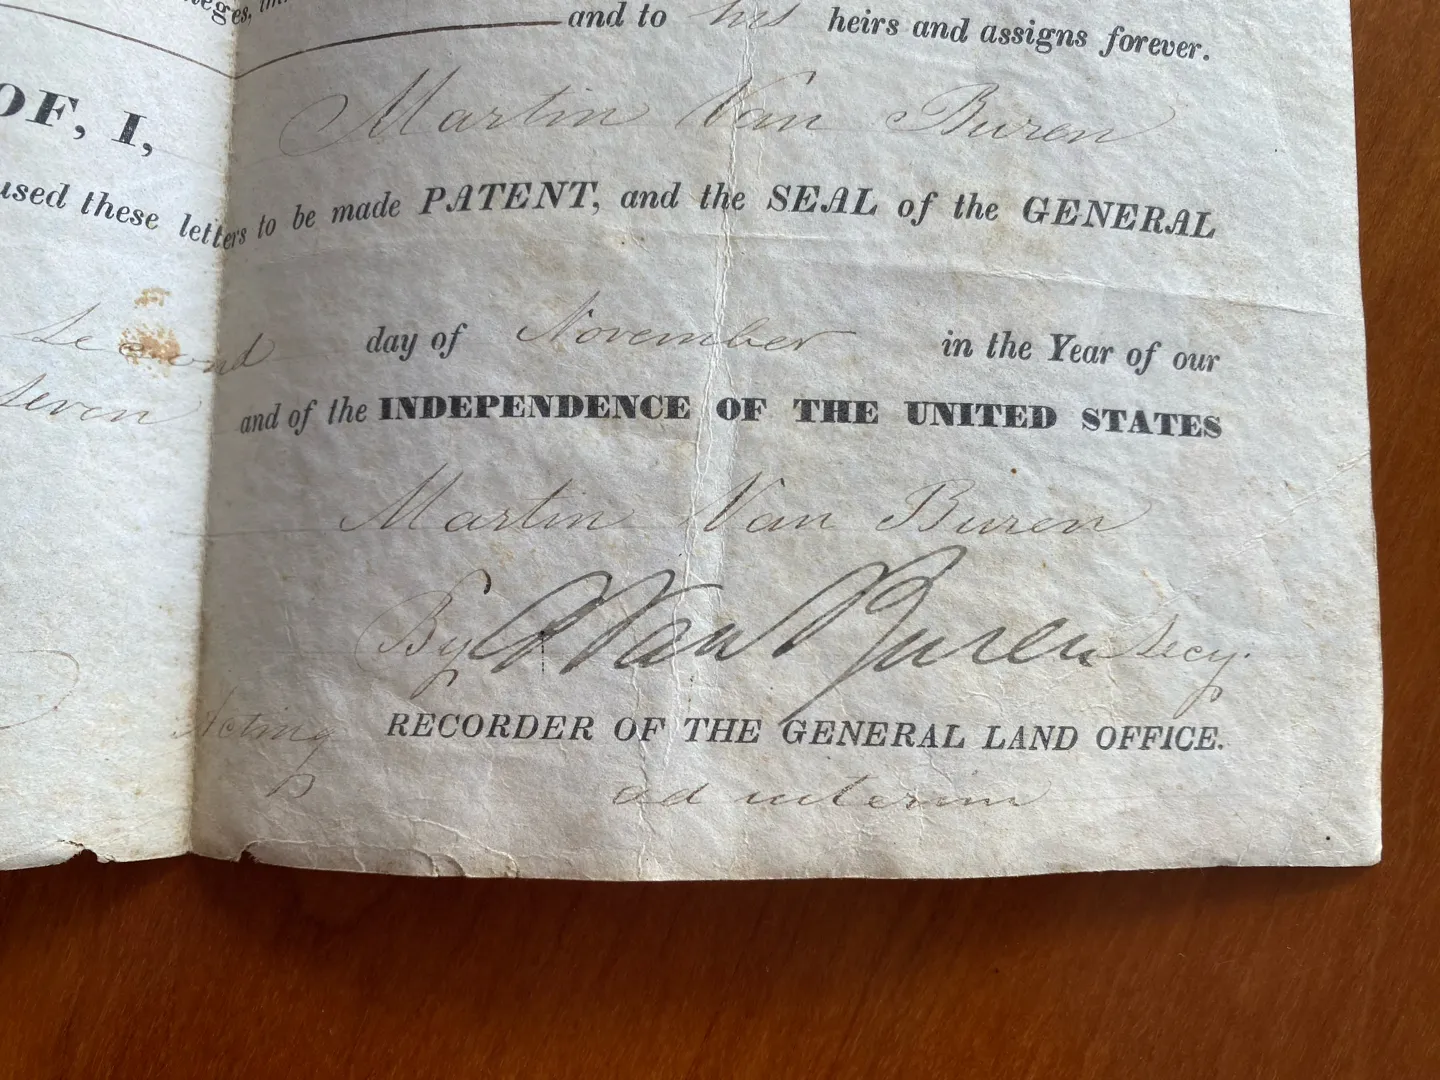 and to his heirs and assigns forever.
OF, I, Martin Van Buren
used these letters to be made PATENT, and the SEAL of the GENERAL
Second day of November in the Year of our
seven and of the INDEPENDENCE OF THE UNITED STATES
Martin Van Buren
By A Van Buren Secy.
Acting RECORDER OF THE GENERAL LAND OFFICE.
ad interim